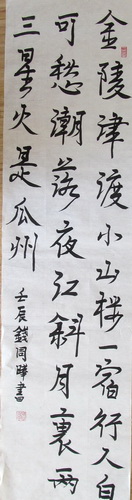 金陵津渡小山楼一宿行人自
可愁潮落夜江斜月裏两
三星火是瓜州
壬辰錢岡曄書